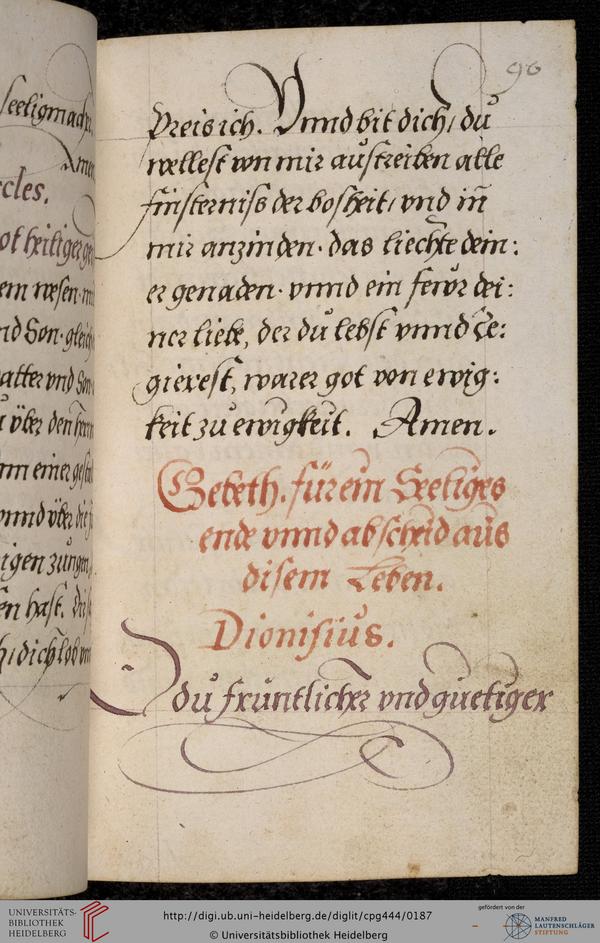 seeligmach
Amen
cles.
ot heiliger ge
em wesen
nd Son gleich
atter vnd Son
vber den
nm einer gestal
vnnd vber die
igen zungen
en hast.
dich lob
90
Preis ich. Vnnd bit dich, du
wellest von mir austreiben alle
finsterniss der bosheit, vnd in̄
mir anzinden. das liechte dein:
er genaden. vnnd ein fewr dei:
ner liebe, der du lebst vnnd re:
gierest, warer got von ewig:
keit zu ewigkeit. Amen.
Gebeth. für ein Seeliges
ende vnnd abscheid aus
disem Leben.
Dionisius.
O du fruntlicher vnd guetiger
UNIVERSITÄTS-
BIBLIOTHEK
HEIDELBERG
http://digi.ub.uni-heidelberg.de/diglit/cpg444/0187
© Universitätsbibliothek Heidelberg
gefördert von der
MANFRED
LAUTENSCHLÄGER
STIFTUNG